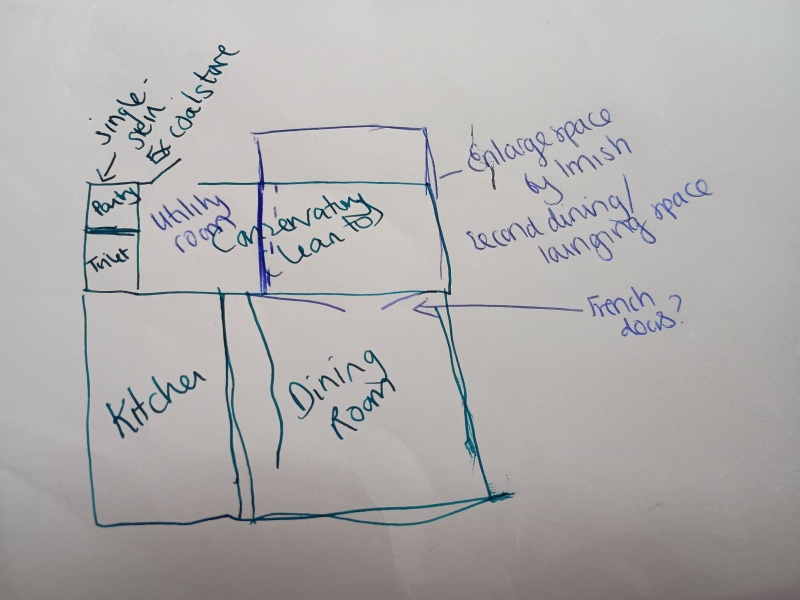 single-
skin
& coalstore
Pantry
Toilet
Utility
room
Conservatory
(lean to)
Enlarge space
by 1mish
second dining/
lounging space
French
doors?
Kitchen
Dining
Room